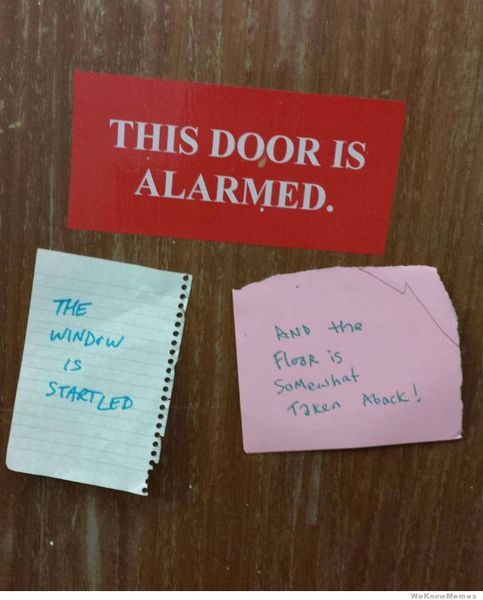 THIS DOOR IS
ALARMED.
THE
WINDOW
IS
STARTLED
AND the
FlooR is
SoMewhat
Taken Aback!
WeKnowMemes